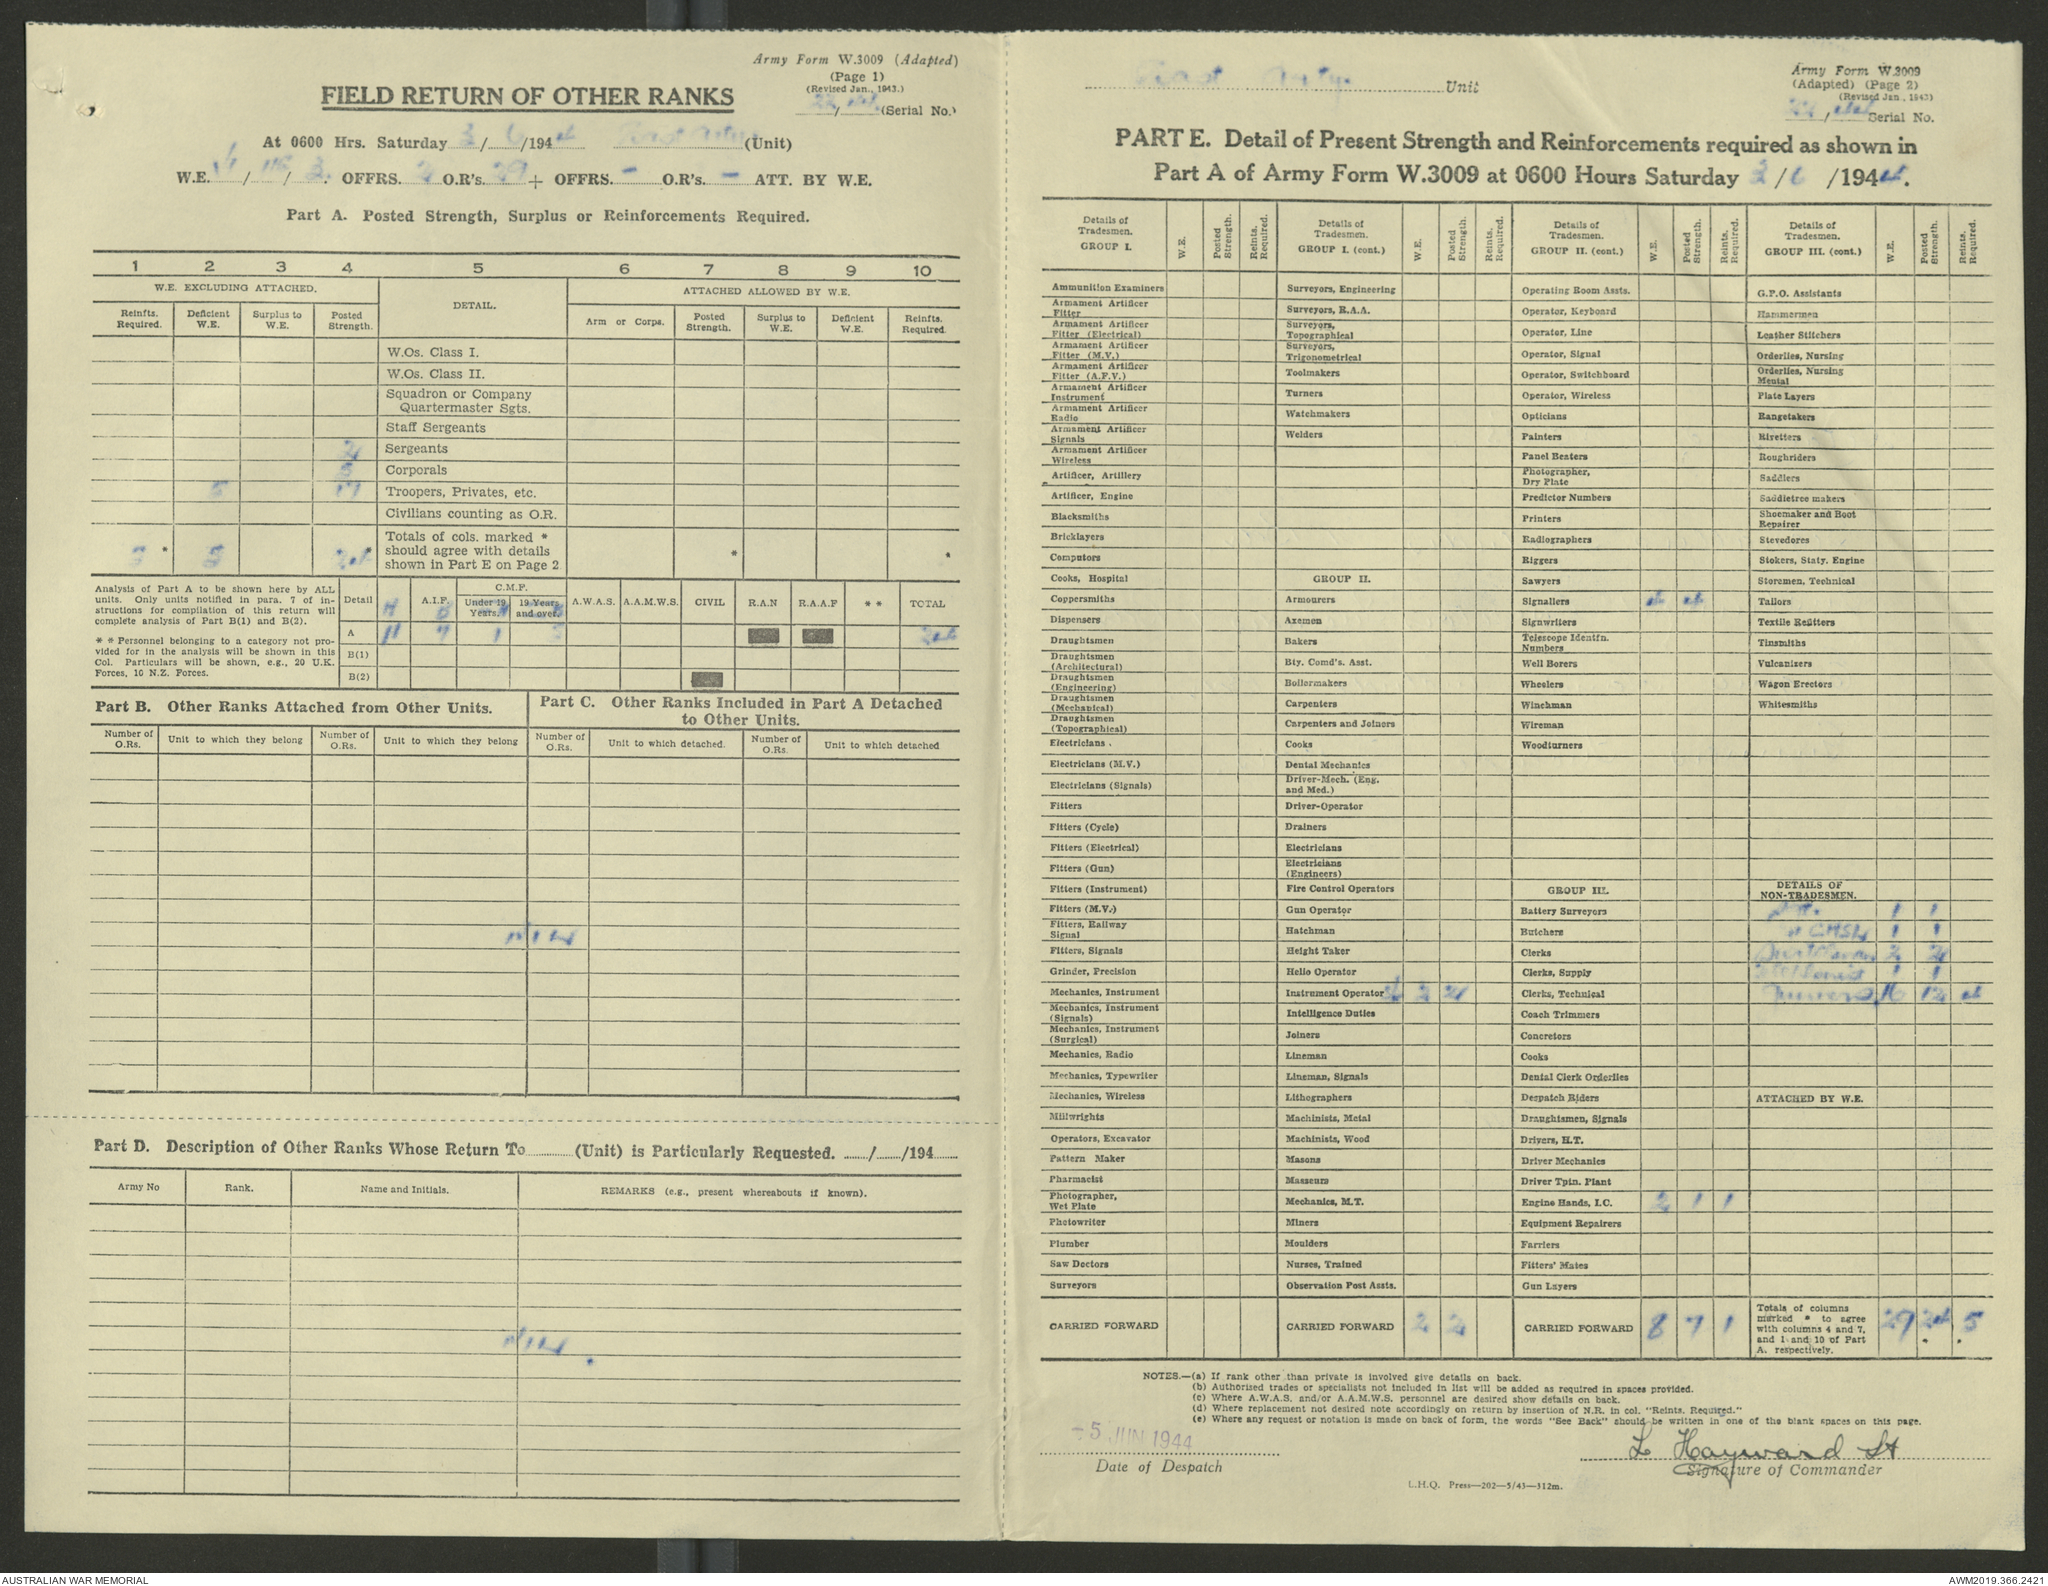 Army Form W.3009 (Adapted)
(Page 1)
(Revised Jan., 1943.)
(Serial No.)
FIELD RETURN OF OTHER RANKS
At 0600 Hrs. Saturday 3/6/1944 (Unit)
W.E. / / OFFRS. 2 O.R's. 29 + OFFRS. - O.R's. - ATT. BY W.E.
Part A. Posted Strength, Surplus or Reinforcements Required.
1 2 3 4 5 6 7 8 9 10
W.E. EXCLUDING ATTACHED. DETAIL. ATTACHED ALLOWED BY W.E.
Reinfts. Required. Deficient W.E. Surplus to W.E. Posted Strength. Arm or Corps. Posted Strength. Surplus to W.E. Deficient W.E. Reinfts. Required.
W.Os. Class I.
W.Os. Class II.
Squadron or Company
Quartermaster Sgts.
Staff Sergeants
2 Sergeants
5 Corporals
5 17 Troopers, Privates, etc.
Civilians counting as O.R.
5 * 5 24 Totals of cols. marked * * *
should agree with details
shown in Part E on Page 2
Analysis of Part A to be shown here by ALL
units. Only units notified in para. 7 of in-
structions for compilation of this return will
complete analysis of Part B(1) and B(2).
* * Personnel belonging to a category not pro-
vided for in the analysis will be shown in this
Col. Particulars will be shown, e.g., 20 U.K.
Forces, 10 N.Z. Forces.
Detail A.I.F. C.M.F. Under 19 Years. 19 Years and over. A.W.A.S. A.A.M.W.S. CIVIL R.A.N R.A.A.F * * TOTAL
A 11 7 1 24
B(1)
B(2)
Part B. Other Ranks Attached from Other Units.
Part C. Other Ranks Included in Part A Detached
to Other Units.
Number of O.Rs. Unit to which they belong Number of O.Rs. Unit to which they belong Number of O.Rs. Unit to which detached. Number of O.Rs. Unit to which detached
NIL
Part D. Description of Other Ranks Whose Return To (Unit) is Particularly Requested. / /194
Army No Rank. Name and Initials. REMARKS (e.g., present whereabouts if known).
NIL.
Unit
Army Form W.3009
(Adapted) (Page 2)
(Revised Jan., 1943)
Serial No.
PART E. Detail of Present Strength and Reinforcements required as shown in
Part A of Army Form W.3009 at 0600 Hours Saturday 3/6/1944.
Details of Tradesmen. GROUP I. W.E. Posted Strength. Reints. Required.
Ammunition Examiners
Armament Artificer Fitter
Armament Artificer Fitter (Electrical)
Armament Artificer Fitter (M.V.)
Armament Artificer Fitter (A.F.V.)
Armament Artificer Instrument
Armament Artificer Radio
Armament Artificer Signals
Armament Artificer Wireless
Artificer, Artillery
Artificer, Engine
Blacksmiths
Bricklayers
Computors
Cooks, Hospital
Coppersmiths
Dispensers
Draughtsmen
Draughtsmen (Architectural)
Draughtsmen (Engineering)
Draughtsmen (Mechanical)
Draughtsmen (Topographical)
Electricians
Electricians (M.V.)
Electricians (Signals)
Fitters
Fitters (Cycle)
Fitters (Electrical)
Fitters (Gun)
Fitters (Instrument)
Fitters (M.V.)
Fitters, Railway Signal
Fitters, Signals
Grinder, Precision
Mechanics, Instrument
Mechanics, Instrument (Signals)
Mechanics, Instrument (Surgical)
Mechanics, Radio
Mechanics, Typewriter
Mechanics, Wireless
Millwrights
Operators, Excavator
Pattern Maker
Pharmacist
Photographer, Wet Plate
Photowriter
Plumber
Saw Doctors
Surveyors
CARRIED FORWARD
Details of Tradesmen. GROUP I. (cont.) W.E. Posted Strength. Reints. Required.
Surveyors, Engineering
Surveyors, R.A.A.
Surveyors, Topographical
Surveyors, Trigonometrical
Toolmakers
Turners
Watchmakers
Welders
GROUP II.
Armourers
Axemen
Bakers
Bty. Comd's. Asst.
Boilermakers
Carpenters
Carpenters and Joiners
Cooks
Dental Mechanics
Driver-Mech. (Eng. and Med.)
Driver-Operator
Drainers
Electricians
Electricians (Engineers)
Fire Control Operators
Gun Operator
Hatchman
Height Taker
Helio Operator
Instrument Operator 2 2
Intelligence Duties
Joiners
Lineman
Lineman, Signals
Lithographers
Machinists, Metal
Machinists, Wood
Masons
Masseurs
Mechanics, M.T.
Miners
Moulders
Nurses, Trained
Observation Post Assts.
CARRIED FORWARD 2 2
Details of Tradesmen. GROUP II. (cont.) W.E. Posted Strength. Reints. Required.
Operating Room Assts.
Operator, Keyboard
Operator, Line
Operator, Signal
Operator, Switchboard
Operator, Wireless
Opticians
Painters
Panel Beaters
Photographer, Dry Plate
Predictor Numbers
Printers
Radiographers
Riggers
Sawyers
Signallers 4 4
Signwriters
Telescope Identfn. Numbers
Well Borers
Wheelers
Winchman
Wireman
Woodturners
GROUP III.
Battery Surveyors
Butchers
Clerks
Clerks, Supply
Clerks, Technical
Coach Trimmers
Concretors
Cooks
Dental Clerk Orderlies
Despatch Riders
Draughtsmen, Signals
Drivers, H.T.
Driver Mechanics
Driver Tptn. Plant
Engine Hands, I.C. 2 1 1
Equipment Repairers
Farriers
Fitters' Mates
Gun Layers
CARRIED FORWARD 8 7 1
Details of Tradesmen. GROUP III. (cont.) W.E. Posted Strength. Reints. Required.
G.P.O. Assistants
Hammermen
Leather Stitchers
Orderlies, Nursing
Orderlies, Nursing Mental
Plate Layers
Rangetakers
Rivetters
Roughriders
Saddlers
Saddletree makers
Shoemaker and Boot Repairer
Stevedores
Stokers, Staty. Engine
Storemen, Technical
Tailors
Textile Refitters
Tinsmiths
Vulcanizers
Wagon Erectors
Whitesmiths
DETAILS OF NON-TRADESMEN.
1 1
1 1
2 2
1 1
16 12 4
ATTACHED BY W.E.
Totals of columns marked * to agree with columns 4 and 7, and 1 and 10 of Part A. respectively. 29 24 5
NOTES.—(a) If rank other than private is involved give details on back.
(b) Authorised trades or specialists not included in list will be added as required in spaces provided.
(c) Where A.W.A.S. and/or A.A.M.W.S. personnel are desired show details on back.
(d) Where replacement not desired note accordingly on return by insertion of N.R. in col. "Reints. Required."
(e) Where any request or notation is made on back of form, the words "See Back" should be written in one of the blank spaces on this page.
-5 JUN 1944
Date of Despatch
L Hayward Lt
Signature of Commander
L.H.Q. Press—202—5/43—312m.
AUSTRALIAN WAR MEMORIAL
AWM2019.366.2421